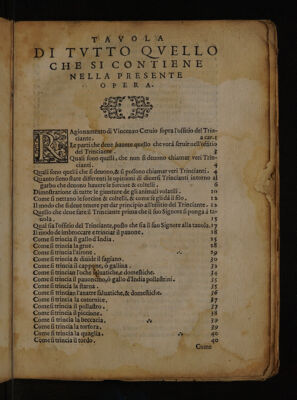 TAVOLA
DI TVTTO QVELLO
CHE SI CONTIENE
NELLA PRESENTE
OPERA.
RAgionamento di Vincenzo Ceruio sopra l'officio del Trin-
ciante. a car. 1
Le parti che deue hauere quello che vorà seruir nell'officio
del Trinciante. 2
Quali sono quelli, che non si deuono chiamar veri Trin-
cianti. 4
Quali sono quelli che si deuono, & si possono chiamar veri Trincianti. 4
Quanto sieno state differenti le opinioni di diuersi Trincianti intorno al
garbo che deuono hauere le forcine & coltelli. 6
Dimostratione di tutte le giunture de gli animali volatili 10
Come si nettano le forcine & coltelli, & come si gli dà il filo 12
Il modo che si deue tenere per dar principio all'officio del Trinciante. 12
Quello che deue fare il Trinciante prima che il suo Signore si ponga à ta-
uola. 15
Qual sia l'officio del Trinciante, posto che sia il suo Signore alla tauola. 17
Il modo di imbroccare e trinciar il pauone. 18
Come si trincia il gallo d'India. 25
Come si trincia la grue. 28
Come si trincia l'airone 29
Come si trincia & diuide il fagiano. 30
Come si trincia il cappone, ò gallina 32
Come si trincian l'oche saluatiche, e domestiche. 34
Come si trincia il pauoncino, ò gallo d'India pollastrini. 35
Come si trincia la starna 35
Come si trincian l'anatre saluatiche, & domestiche. 36
Come si trincia la coturnice. 37
Come si trincia il pollastro. 37
Come si trincia il piccione. 38
Come si trincia la beccaria. 39
Come si trincia la tortora. 39
Come si trincia la quaglia. 40
Come si trincia il tordo. 40
Come